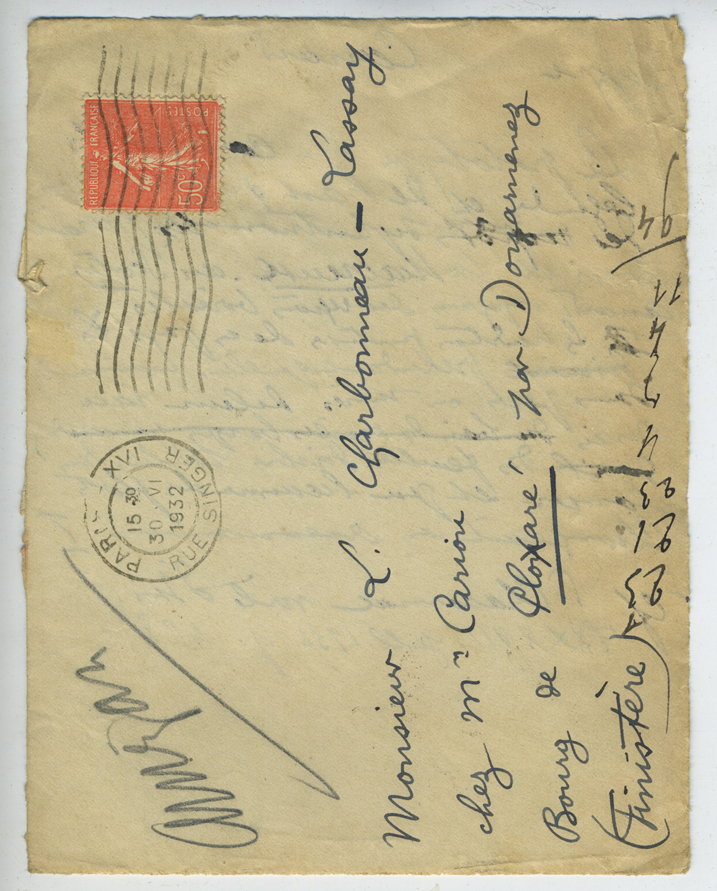 RÉPUBLIQUE FRANÇAISE
POSTES
50c
PARIS XVI
15 30
30 VI
1932
RUE SINGER
Monsieur L. Charbonneau-Lassay
chez Mr Carion
Bourg de Ploaré par Douarnenez
(Finistère)